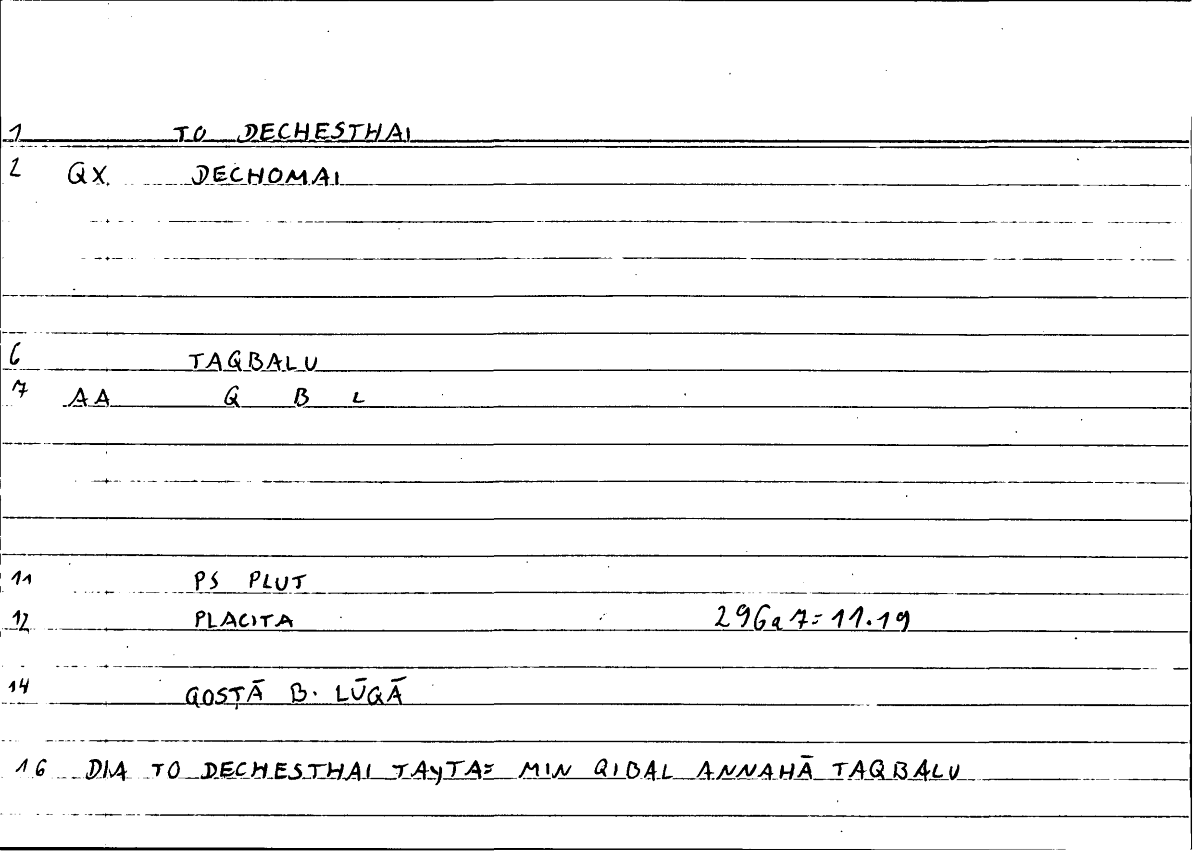 1 TO DECHESTHAI
2 QX. DECHOMAI
6 TAQBALU
7 AA Q B L
11 PS PLUT
12 PLACITA 296a7=11.19
14 QOSṬĀ B. LŪQĀ
16 DIA TO DECHESTHAI TAYTA= MIN QIBAL ANNAHĀ TAQBALU